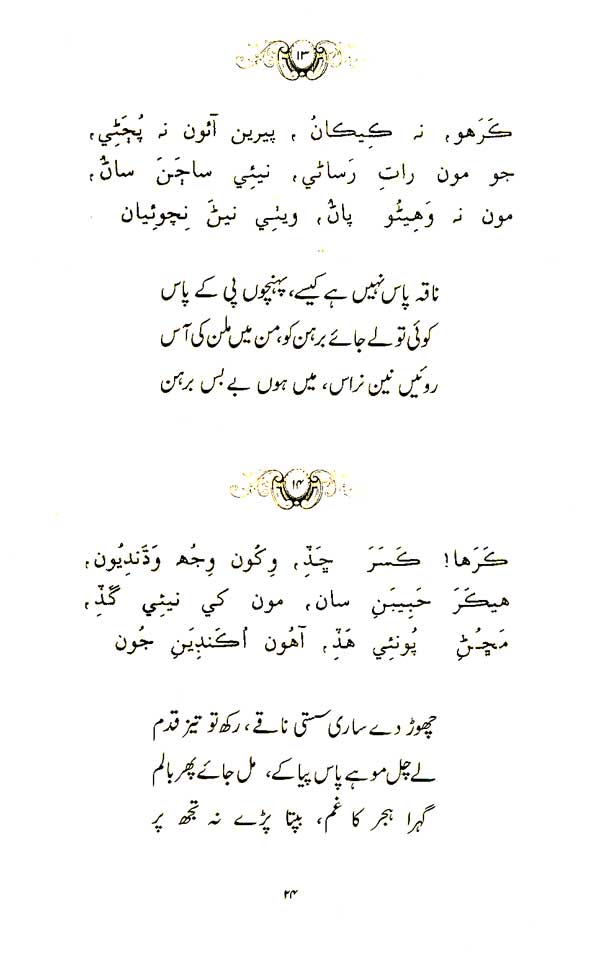 ۱۳
ڪَرَهو، نہ ڪِيڪانُ، پيرين آئون نہ پُڄَڻِي،
جو مون راتِ رَساڻي، نيئِي ساڄَنَ ساڻُ،
مون نہ وَهِيڻُو پاڻُ، ويٺِي نيڻَ نِچوئِيان
ناقہ پاس نہیں ہے کیسے، پہنچوں پی کے پاس
کوئی تو لے جائے برہن کو، من میں ملن کی آس
روئیں نین نراس، میں ہوں بے بس برہن
۱۴
ڪَرَها! ڪَسَرَ ڇَڏِ، وِکُون وِجُھ وَڌَندِيُون،
هيڪَرَ حَبِيبَنِ سان، مون کي نيئِي گَڏِ،
مَڇُڻِ پُونئِي هَڏِ، آهُون اُڪَندِيَنِ جُون
چھوڑ دے ساری سستی ناقے، رکھ تو تیز قدم
لے چل موہے پاس پیا کے، مل جائے پھر بالم
گہرا ہجر کا غم، بپتا پڑے نہ تجھ پر
۲۴